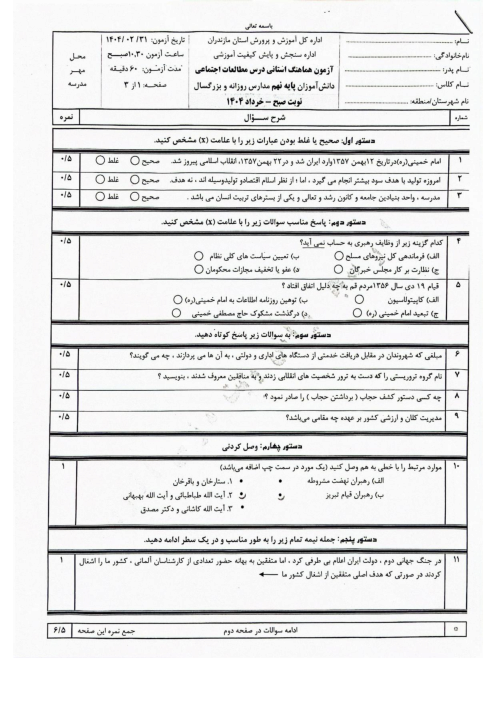 باسمه تعالی
نــام: ...............................
نام‌خانوادگی: ...............................
نـام پدر: ...............................
نام کلاس: ...............................
نام شهرستان/منطقه: ...............................
اداره کل آموزش و پرورش استان مازندران
اداره سنجش و پایش کیفیت آموزشی
آزمون هماهنگ استانی درس مطالعات اجتماعی
دانش‌آموزان پایه نهم مدارس روزانه و بزرگسال
نوبت صبح - خرداد ۱۴۰۴
تاریخ آزمون: ۳۱/ ۰۲ /۱۴۰۴
ساعت آزمون ۱۰.۳۰صبح
مدت آزمـون: ۶۰ دقیقه
صفحـه: ۱ از ۳
محـل
مهـر
مدرسه
شماره شرح ســؤال نمره
دستور اول: صحیح یا غلط بودن عبارات زیر را با علامت (x) مشخص کنید.
۱ امام خمینی(ره)درتاریخ ۱۲بهمن ۱۳۵۷وارد ایران شد و در۲۲ بهمن۱۳۵۷، انقلاب اسلامی پیروز شد. صحیح غلط ۰/۵
۲ امروزه تولید با هدف سود بیشتر انجام می گیرد ، اما ؛ از نظر اسلام اقتصادو تولیدوسیله اند ، نه هدف. صحیح غلط ۰/۵
۳ مدرسه ، واحد بنیادین جامعه و کانون رشد و تعالی و یکی از بسترهای تربیت انسان می باشد . صحیح غلط ۰/۵
دستور دوم: پاسخ مناسب سوالات زیر را با علامت (x) مشخص کنید.
۴ کدام گزینه زیر از وظایف رهبری به حساب نمی آید؟ ۰/۵
الف) فرماندهی کل نیروهای مسلح ب) تعیین سیاست های کلی نظام
ج) نظارت بر کار مجلس خبرگان د) عفو یا تخفیف مجازات محکومان
۵ قیام ۱۹ دی سال ۱۳۵۶مردم قم به چه دلیل اتفاق افتاد ؟ ۰/۵
الف) کاپیتولاسیون ب) توهین روزنامه اطلاعات به امام خمینی(ره)
ج) تبعید امام خمینی (ره) د) درگذشت مشکوک حاج مصطفی خمینی
دستور سوم: به سوالات زیر پاسخ کوتاه دهید.
۶ مبلغی که شهروندان در مقابل دریافت خدمتی از دستگاه های اداری و دولتی ، به آن ها می پردازند ، چه می گویند؟ ۰/۵
۷ نام گروه تروریستی را که دست به ترور شخصیت های انقلابی زدند و به منافقین معروف شدند ، بنویسید ؟ ۰/۵
۸ چه کسی دستور کشف حجاب ( برداشتن حجاب ) را صادر نمود ؟ ۰/۵
۹ مدیریت کلان و ارزشی کشور بر عهده چه مقامی می‌باشد؟ ۰/۵
دستور چهارم: وصل کردنی
۱۰ موارد مرتبط را با خطی به هم وصل کنید (یک مورد در سمت چپ اضافه می‌باشد) ۱
الف) رهبران نهضت مشروطه ۱. ستارخان و باقرخان
ب) رهبران قیام تبریز ۲. آیت الله طباطبائی و آیت الله بهبهانی
۳. آیت الله کاشانی و دکتر مصدق
دستور پنجم: جمله نیمه تمام زیر را به طور مناسب و در یک سطر ادامه دهید.
۱۱ در جنگ جهانی دوم ، دولت ایران اعلام بی طرفی کرد ، اما متفقین به بهانه حضور تعدادی از کارشناسان آلمانی ، کشور ما را اشغال ۱
کردند در صورتی که هدف اصلی متفقین از اشغال کشور ما ←
ادامه سوالات در صفحه دوم جمع نمره این صفحه ۶/۵